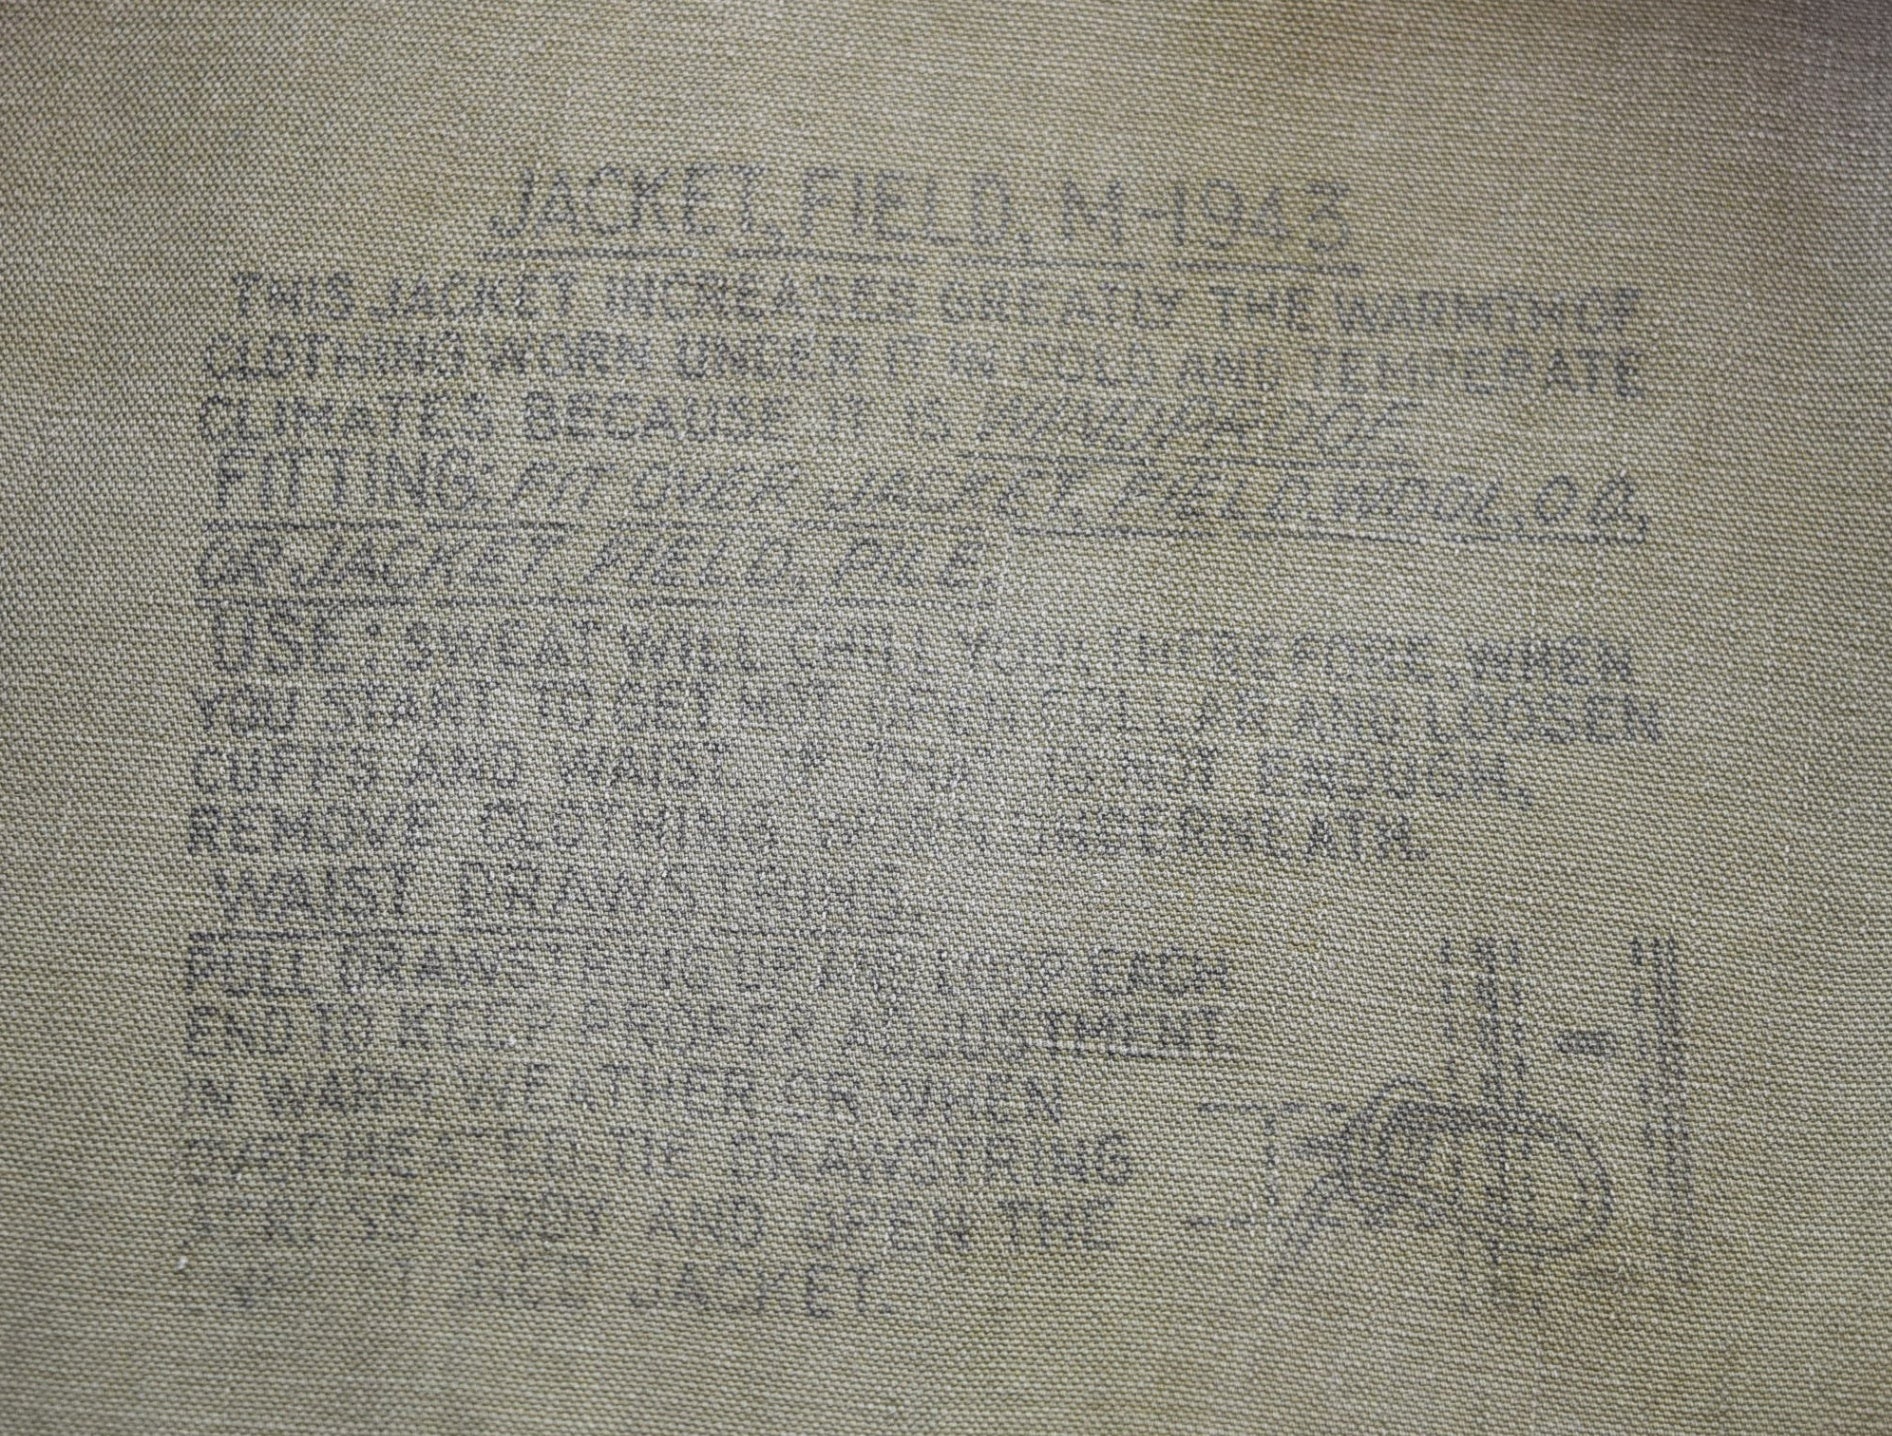 JACKET, FIELD, M-1943
THIS JACKET INCREASES GREATLY THE WARMTH OF
CLOTHING WORN UNDER IT IN COLD AND TEMPERATE
CLIMATES BECAUSE IT IS WINDPROOF
FITTING: FIT OVER JACKET, FIELD, WOOL, O.D.,
OR JACKET, FIELD, PILE.
USE: SWEAT WILL CHILL YOU, THEREFORE, WHEN
YOU START TO GET HOT OPEN COLLAR AND LOOSEN
CUFFS AND WAIST. IF THIS IS NOT ENOUGH,
REMOVE CLOTHING WORN UNDERNEATH.
WAIST DRAWSTRING.
PULL DRAWSTRING UP AND LOOP EACH
END TO KEEP PROPER ADJUSTMENT.
IN WARM WEATHER OR WHEN
OVERHEATED, TIE DRAWSTRING
BODY AND OPEN THE
JACKET.